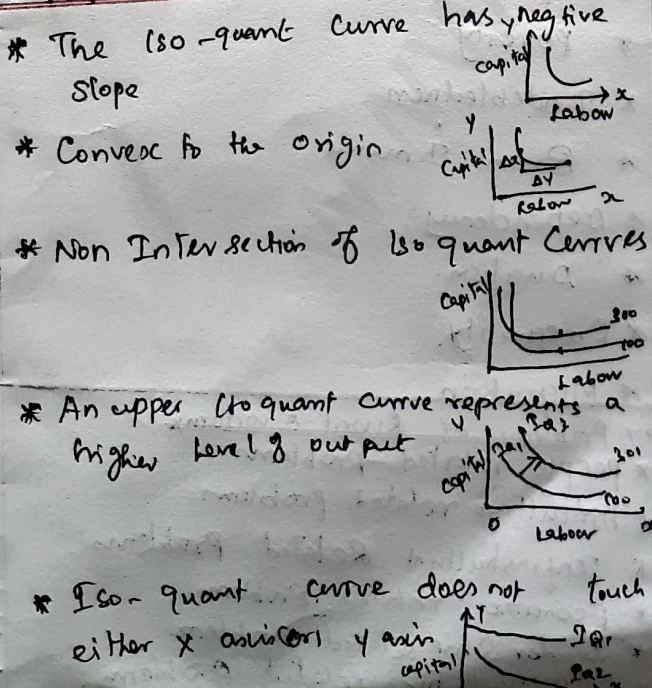 * The Iso-quant curve has negtive
slope
Capital
Labour x
* Convex to the origin
Y
Capital
ΔY
Labour x
* Non Intersection of Iso quant Curves
Capital
300
100
Labour
* An upper Iso quant curve represents a
higher Level of output
Y
Capital
IQ1
301
100
O Labour
* Iso-quant curve does not touch
either X axis (or) y axis
Y
Capital
IQ1
IQ2